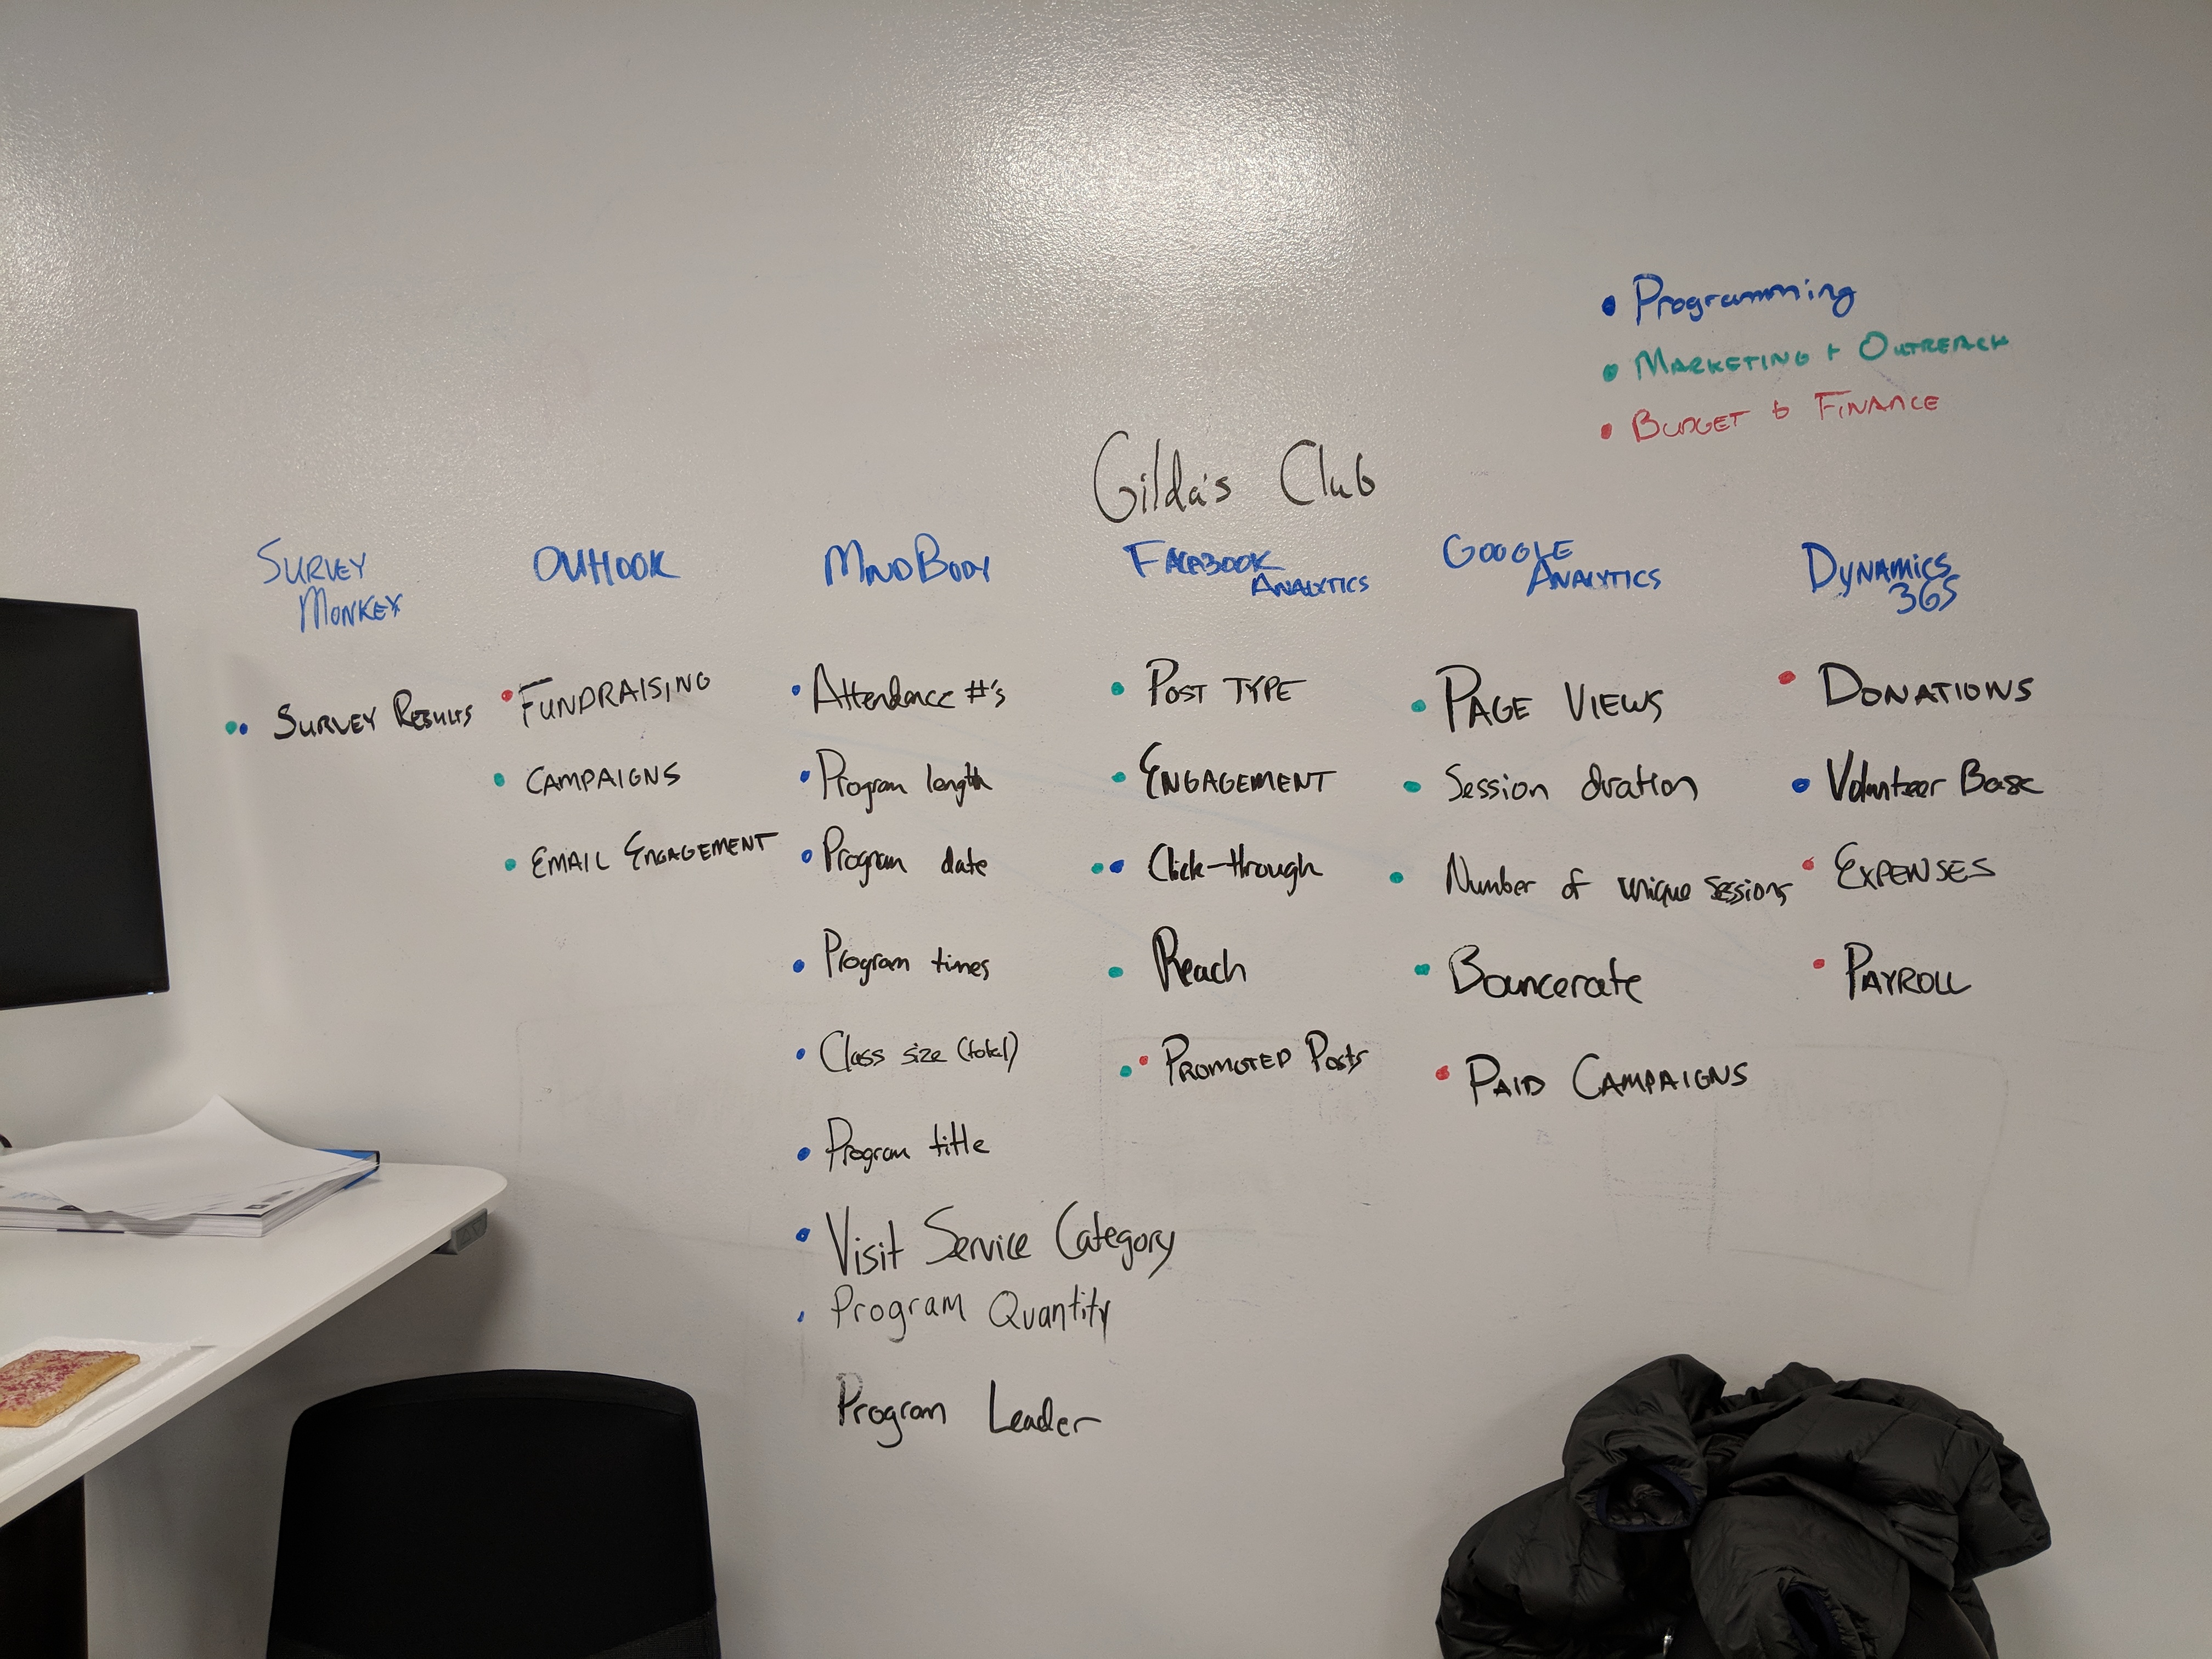 Programming
MARKETING + OUTREACH
BUDGET & FINANCE
Gilda's Club
SURVEY
MONKEY
SURVEY RESULTS
OUTLOOK
FUNDRAISING
CAMPAIGNS
EMAIL ENGAGEMENT
MINDBODY
Attendance #'s
Program length
Program date
Program times
Class size (total)
Program title
Visit Service Category
Program Quantity
Program Leader
FACEBOOK
ANALYTICS
POST TYPE
ENGAGEMENT
Click-through
Reach
PROMOTED Posts
GOOGLE
ANALYTICS
PAGE VIEWS
Session duration
Number of unique sessions
Bouncerate
PAID CAMPAIGNS
DYNAMICS
365
DONATIONS
Volunteer Base
EXPENSES
PAYROLL